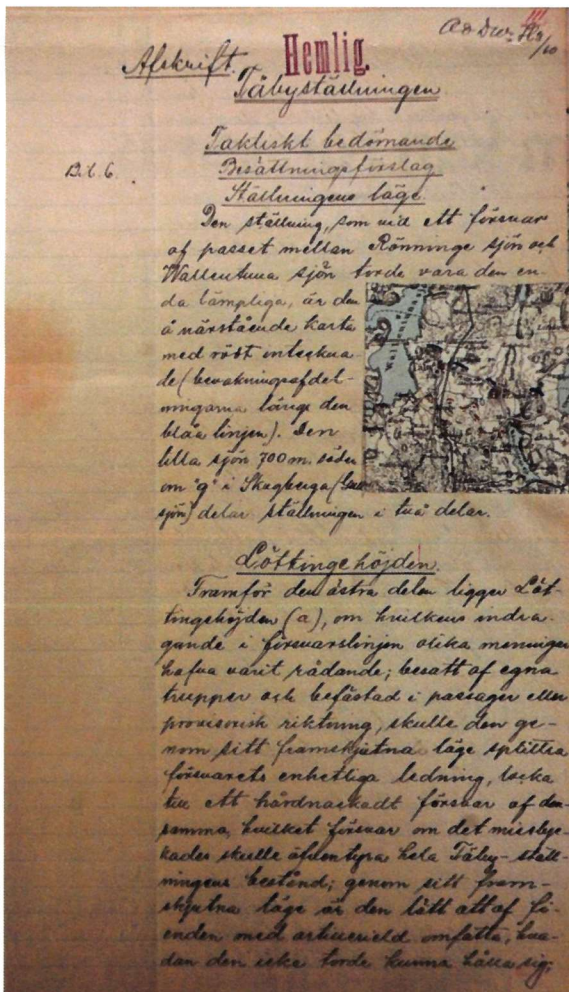 Afskrift.
Hemlig.
Täbyställningen
Taktiskt bedömande
Bil. 6.
Besättningsförslag
Ställningens läge.
Den ställning, som vid ett försvar
af passet mellan Rönninge sjön och
Wallentuna sjön torde vara den en-
da lämpliga, är den
å närstående karta
med rödt inteckna
de (bevakningsafdel-
ningarna längs den
blåa linjen). Den
lilla sjön 700 m. söder
om "g" i Skogberga (
sjön) delar ställningen i två delar.
Löttingehöjden.
Framför den östra delen ligger Löt-
tingehöjden (a), om hvilkens indra-
gande i försvarslinjen olika meningar
hafva varit rådande; besatt af egna
trupper och befästad i passager eller
provisorisk riktning, skulle den ge-
nom sitt framskjutna läge splittra
försvarets enhetliga ledning, locka
till ett hårdnackadt försvar af den-
samma, hvilket försvar om det misslyc-
kades skulle äfventyra hela Täby-ställ-
ningens bestånd; genom sitt fram-
skjutna läge är den lätt att af fi-
enden med artillerield omfatta, hva-
dan den icke torde kunna hålla sig,